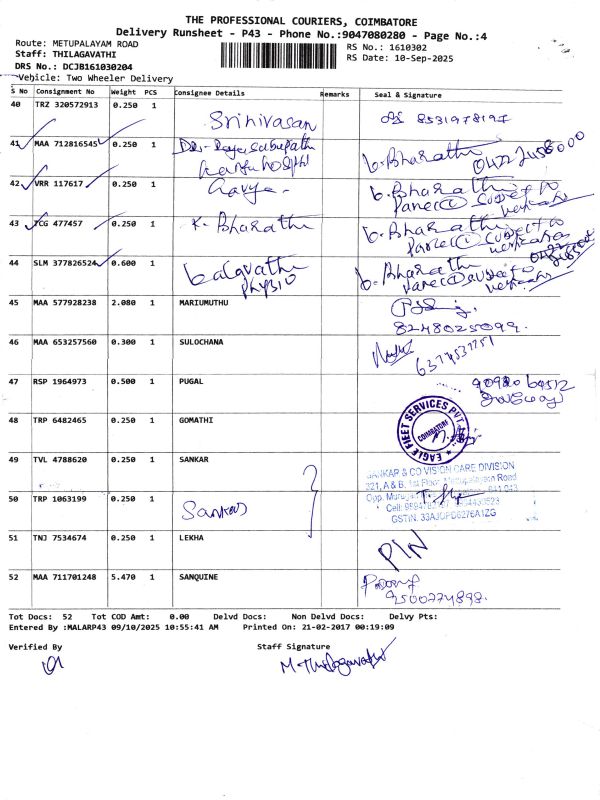 THE PROFESSIONAL COURIERS, COIMBATORE
Delivery Runsheet - P43 - Phone No.:9047080280 - Page No.:4
Route: METUPALAYAM ROAD
Staff: THILAGAVATHI
DRS No.: DCJB161030204
Vehicle: Two Wheeler Delivery
RS No.: 1610302
RS Date: 10-Sep-2025
S No Consignment No Weight PCS Consignee Details Remarks Seal & Signature
40 TRZ 320572913 0.250 1 Srinivasan 8531978197
41 MAA 712816545 0.250 1 b. Bharathi
42 VRR 117617 0.250 1 Kavya b. Bharathi
Parcel subject to
43 TCG 477457 0.250 1 K. Bharathi b. Bharathi
Parcel subject to
44 SLM 377826524 0.600 1 Physio b. Bharathi
Parcel subject to
45 MAA 577928238 2.080 1 MARIUMUTHU
8248025099
46 MAA 653257560 0.300 1 SULOCHANA
47 RSP 1964973 0.500 1 PUGAL
48 TRP 6482465 0.250 1 GOMATHI EAGLE FLEET SERVICES PVT. COIMBATORE
49 TVL 4788620 0.250 1 SANKAR SANKAR & CO VISION CARE DIVISION
321, A & B, 1st Floor, Mettupalayam Road
50 TRP 1063199 0.250 1 Sankar
GSTIN. 33AJOPD6276A1ZG
51 TNJ 7534674 0.250 1 LEKHA PIN
52 MAA 711701248 5.470 1 SANQUINE
9500774898
Tot Docs: 52 Tot COD Amt: 0.00 Delvd Docs: Non Delvd Docs: Delvy Pts:
Entered By :MALARP43 09/10/2025 10:55:41 AM Printed On: 21-02-2017 00:19:09
Verified By Staff Signature
M. Thilagavathi